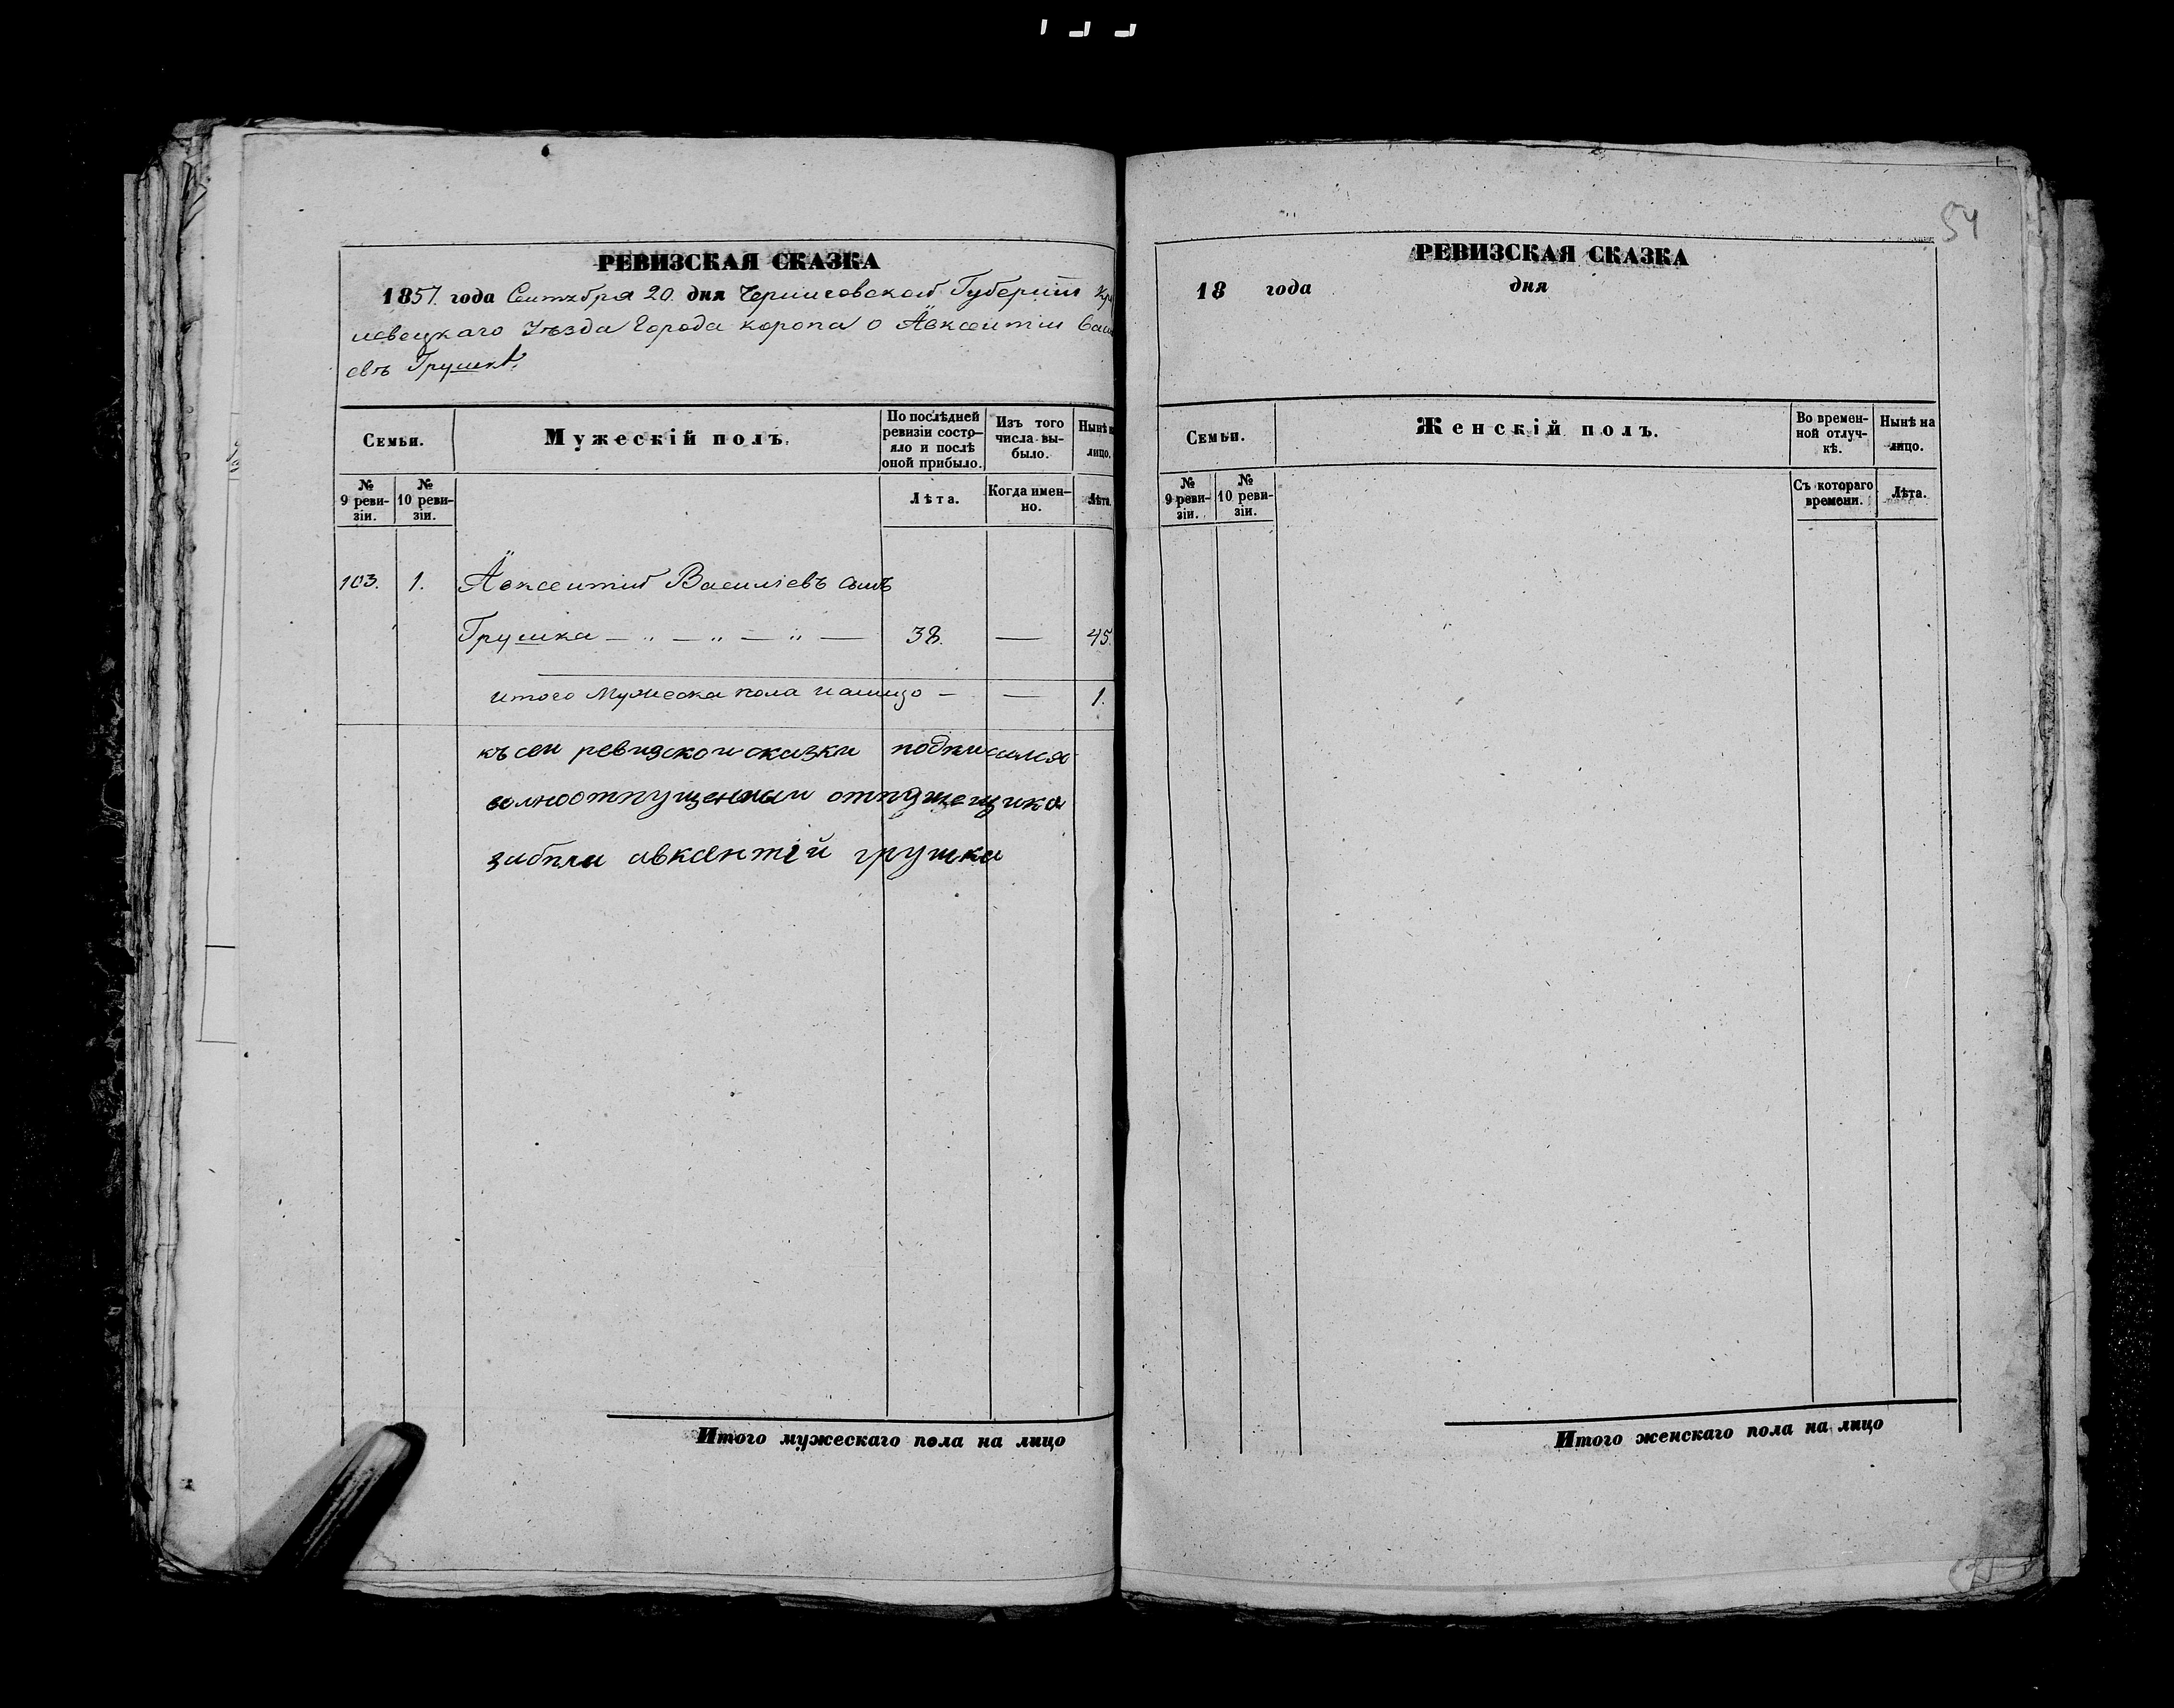 54
РЕВИЗСКАЯ СКАЗКА
1857. года Сентября 20. дня Черниговской Губернiи Кро
левецкаго Уѣзда Города Коропа о Авксентiи Васи
евѣ Грушкѣ.
Семьи.
Мужескій полъ.
По послѣдней ревизіи состояло и послѣ оной прибыло.
Изъ того числа выбыло.
Нынѣ н лицо.
№ 9 ревизіи.
№ 10 ревизіи.
Лѣта.
Когда именно.
Лѣта.
103. 1. Авксентий Василіевъ сынъ
Грушка — „ — „ — „ — 38. — 45.
итого Мужеска пола налицо — — 1.
къ сеи ревизскои сказки подписался
волноотпущенныи
авксентiй грушка
Итого мужескаго пола на лицо
РЕВИЗСКАЯ СКАЗКА
18 года дня
Семьи.
Женскій полъ.
Во временной отлучкѣ.
Нынѣ на лицо.
№ 9 ревизіи.
№ 10 ревизіи.
Съ котораго времени.
Лѣта.
Итого женскаго пола на лицо